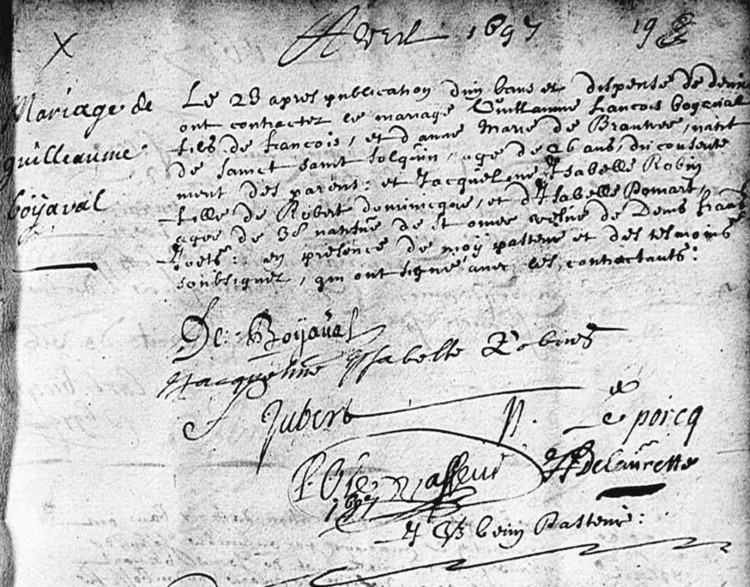 Avril 1697 19
X
Mariage de
guilleaume
boÿaval
Le 23 apres publication d'un bans et dispense de deux
ont contractez le mariage Guillaume francois boyaval
fils de francois, et d'anne Marie de Brauwer, natif
de Sainct agé de 26 ans, du consente
ment des parens: et Jacqueline Isabelle Robin
fille de Robert dominicque, et d'Isabelle Pomart
agee de 38 native de St omer vesve de Denis
en presence de moy pasteur et des tesmoins
soubsignez, qui ont signé avec les contractants:
De Boÿaval
Jacqueline ÿsabelle Robins
Jubert P. Le porcq
1697
pasteur: